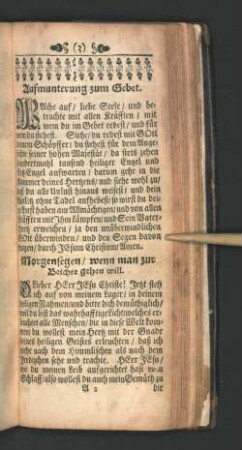 (3)
Aufmunterung zum Gebet.
WAche auf / liebe Seele / und be-
trachte mit allen Kräfften / mit
wem du im Gebet redest / und für
wem du stehest. Siehe / du redest mit GOtt
einem Schöpffer / du stehest für dem Ange-
sichte seiner hohen Majestät / da stets zehen
hundertmahl tausend heilige Engel und
Ertz-Engel aufwarten / darum gehe in die
Kammer deines Hertzens / und siehe wohl zu /
daß du alle Unlust hinaus weisest / und dein
ohne Tadel aufhebest / so wirst du dei-
Lust haben am Allmächtigen / und von allen
Kräfften mit Jhm kämpfen / und Sein Vater-
Hertz erweichen / ja den unüberwindlichen
GOtt überwinden / und den Segen davon
tragen / durch JEsum Christum / Amen.
Morgensegen / wenn man zur
Beichte gehen will.
Lieber HErr JEsu Christe! Jetzt steh
ich auf von meinem Lager / in deinem
heiligen Nahmen / und bitte dich demüthiglich /
weil du bist das wahrhafftige Licht / welches er-
leuchtet alle Menschen / die in diese Welt kom-
men / du wollest mein Hertz mit der Gnade
deines heiligen Geistes erleuchten / daß ich
mehr nach dem Himmlischen als nach dem
Irrdischen sehe und trachte. HErr JEsu /
wie du meinen Leib aufgerichtet hast vom
Schlaff / also wollest du auch mein Gemüth zu
A 2 dir